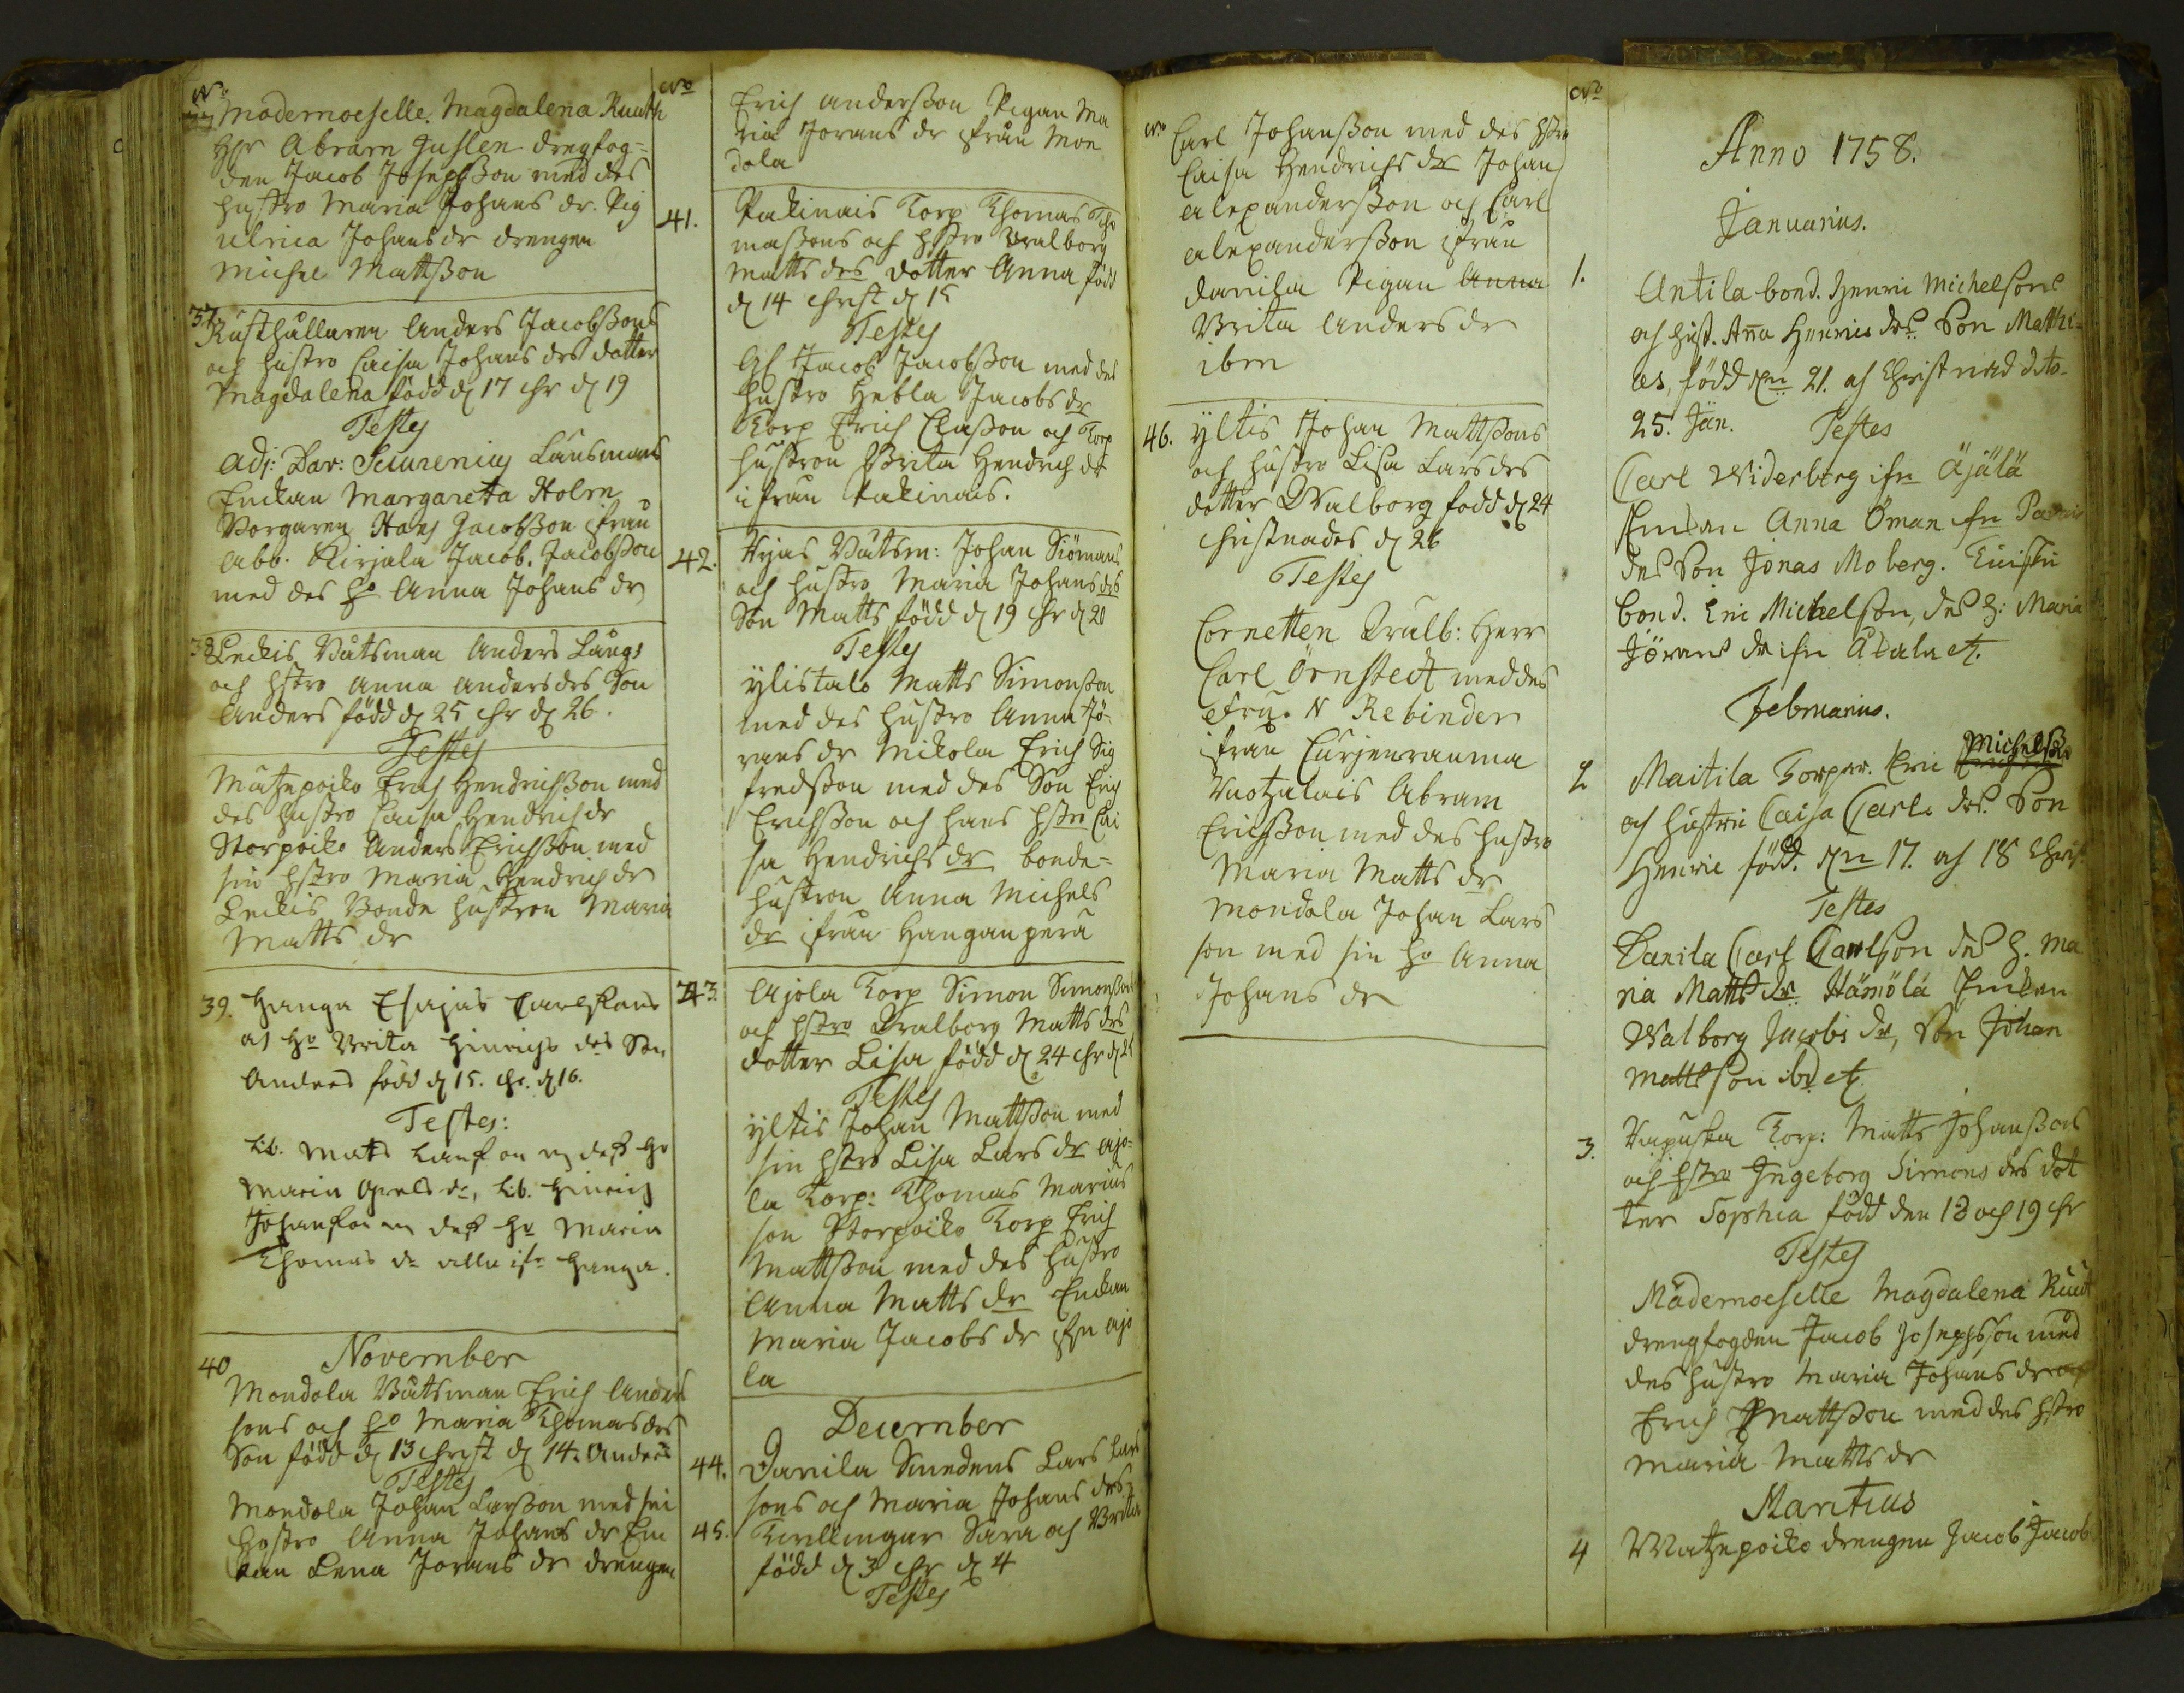 No
Mademoeselle. Magdalena Ruuth
Hr Abram Juslen drengfog=
den Jacob Josephßon med des
hustro Maria Johans dr. Pig
Ulrica Johansdr drengen
Michel Mattßon
37.
Rusthållaren Anders Jacobßons
och hustro Caisa Johans des dotter
Magdalena född d 17 chr d 19
Testes
Adj: Dav: Länsmans
Enckan Margareta Holm
Borgaren Hans Jacobßon ifrån
Abb. Kirjala Jacob. Jacobßon
med des ho Anna Johans dr
38
Leckis Båtsman Anders Långs
och hstro Anna Andersdes Son
Anders född d 25 chr d 26.
Testes
Matzepoiko Erich Hendrichßon med
des hustro Caisa Hendrichdr
Storpoiko Anders Erichßon med
sin hstro Maria Hendrichdr
Leckis Bonde hustron Maria
Matts dr
39. Hanga Esajas Carlssons
och Ho Brita Hinrichs des Son
Anders född d 15. chr. d 16.
Testes:
Lib. Mats Larsson m dess ho
Maria dr, Lib. Hinrich
Johansson m dess ho Maria
Thomas dr alla ifr Hanga.
November
40
Mondola Båtsman Erich Anders
sons och ho Maria Thomasdes
Son född d 13 christ d 14. Anders
Testes
Mondola Johan Larßon med sin
hostro Anna Johans dr En
kan Lena Jorans dr drengen
No
Erich Anderßon Pigan Ma
ria Jorans dr ifrån Mon
dola
41.
Pakinais Torp Thomas Tho
maßons och hstro Walborg
Matts des dotter Anna född
d 14 christ d 15
Testes
Gl Jacob Jacobßon med des
hustro Hebla Jacobs dr
Torp Erich Claßon och Torp
hustron Brita Hendrich dr
ifrån Pakinais.
42.
Hyas Båtsm: Johan Siömans
och hustro Maria Johansdes
Son Matts född d 19 chr d 20
Testes
ylistalo Matts Simonßon
med des hustro Anna Jö-
rans dr Mikola Erich Sig
fredßon med des Son Erich
Erichßon och hans hstro Cai
sa Hendrichs dr bonde=
hustron Anna Michels
dr ifrån Hanganperä
43.
Ajola Torp Simon Simonßons
och hstro Walborg Matts des
dotter Lisa född d 24 chr d 25
Testes
yltis Johan Mattßon med
sin hstro Lisa Lars dr Ajo=
la Torp: Thomas Marius
son Storpoiko Torp Erich
Mattßon med des hustro
Anna Matts dr Enckan
Maria Jacobs dr ifrn Ajo
la
December
44. Danila Smedens Lars Lars
sons och Maria Johans des
45. Twillingar Sara och Brita
född d 3 chr d 4
Testes
No
Carl Johanßon med des hstro
Caisa Hendrichs dr Johan
Alexanderßon och Carl
Alexanderßon ifrån
Danila Pigan Anna
Brita Anders dr
ibm
46. yltis Johan Mattßons
och hustro Lisa Larsdes
dotter Walborg född d 24
christnades d 26
Testes
Cornetten Wälb: Herr
Carl Örnstedt med des
Fru. N Rebinder
ifrån Curjenrauma
Abram
Erichßon med des hustro
Maria Matts dr
Mondola Johan Lars
son med sin ho Anna
Johans dr
No
Anno 1758.
Januarius.
1.
Antila bond. Henric Michelsons
och hust. Aña Henrics des Son Mathi-
as, född den 21. och Christnad dito
25. Jan. Testes
Carl Widerberg ifn Äjälä
Enkan Anna Öman ifn
des Son Jonas Moberg.
bond. Eric Michelson, des h: Maria
Jörans dr ifn
Februarius.
2 Maitila Torpar. Eric Michelßs
och hustru Caisa Carls des Son
Henric född. den 17. och 18 Christ.
Testes
Danila Carl Carlson des h. Ma
ria Matts dr. Hämölä Enkan
Walborg Jacobs dr, Son Johan
Mattsson ibd etc.
3. Torp: Matts Johanßons
och hstro Ingeborg Simons des dot
ter Sophia född den 18 och 19 chr
Testes
Mademoeselle Magdalena Ruut
drengfogden Jacob Josephsson med
des hustro Maria Johans dr
Erich Mattßon med des hstro
Maria Matts dr
Martius
4 Matzepoiko drengen Jacob Jacobs